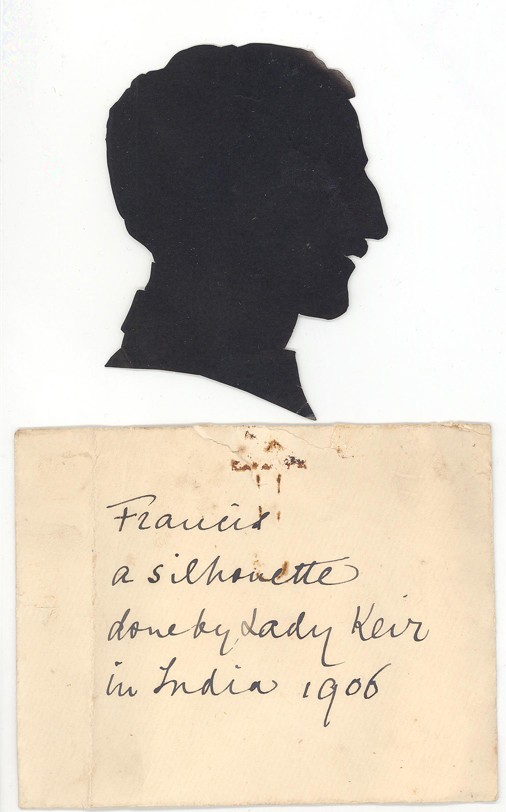 Francis
a silhouette
done by Lady Keir
in India 1906